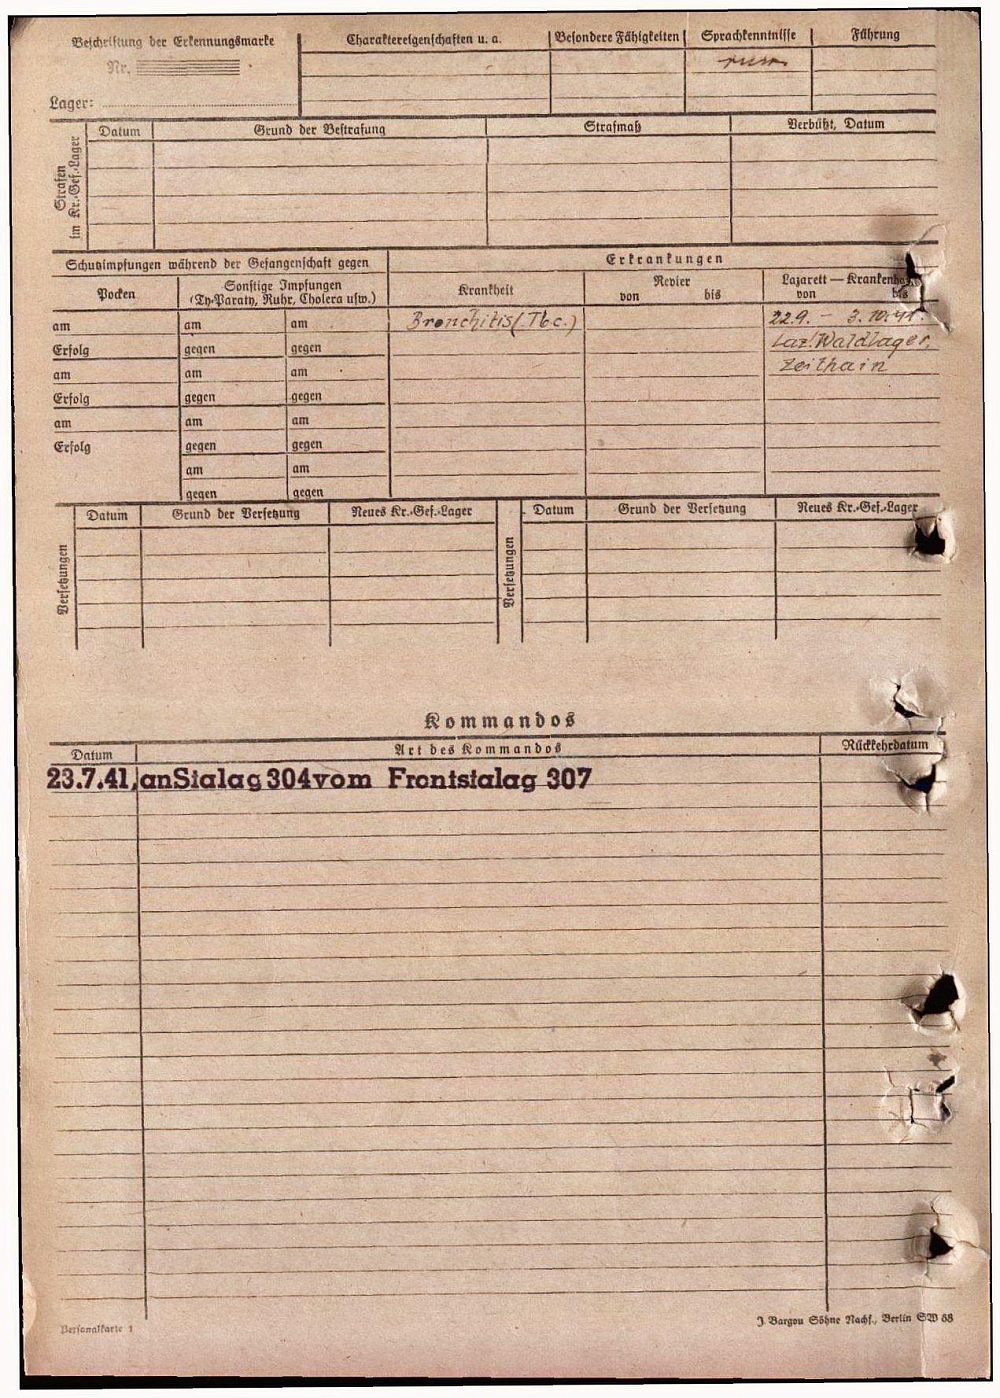 Beschriftung der Erkennungsmarke
Nr.
Lager:
Charaktereigenschaften u. a.
Besondere Fähigkeiten
Sprachkenntnisse
Führung
russ
Strafen
im Kr.-Gef.-Lager
Datum
Grund der Bestrafung
Strafmaß
Verbüßt, Datum
Schutzimpfungen während der Gefangenschaft gegen
Erkrankungen
Pocken
Sonstige Impfungen
(Ty-Paraty, Ruhr, Cholera usw.)
Krankheit
Revier
von bis
Lazarett — Krankenhaus
von bis
am am am Bronchitis (Tbc.) 22.9. – 3.10.41.
Erfolg gegen gegen Laz. Waldlager,
am am am Zeithain
Erfolg gegen gegen
am am am
Erfolg gegen gegen
am am
gegen gegen
Versetzungen
Datum
Grund der Versetzung
Neues Kr.-Gef.-Lager
Versetzungen
Datum
Grund der Versetzung
Neues Kr.-Gef.-Lager
Kommandos
Datum
Art des Kommandos
Rückkehrdatum
23.7.41, an Stalag 304 vom Frontstalag 307
Personalkarte 1
J. Bargou Söhne Nachf., Berlin SW 68